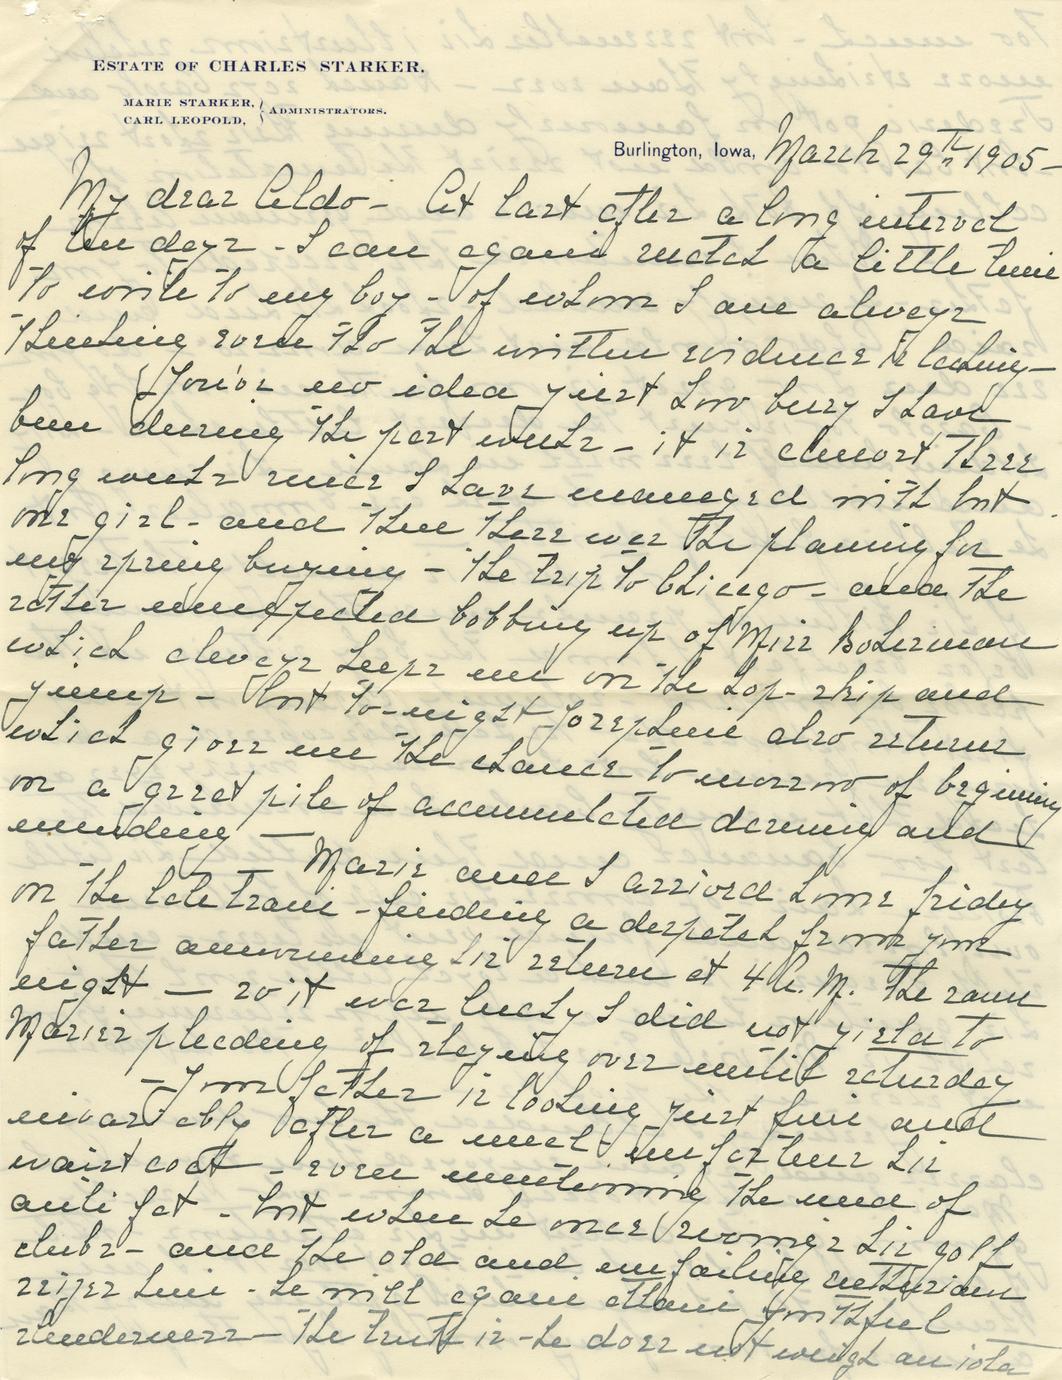 ESTATE OF CHARLES STARKER.
MARIE STARKER,
CARL LEOPOLD, } ADMINISTRATORS.
Burlington, Iowa, March 29th 1905-
My dear Aldo - At last after a long interval
of ten days - I can again snatch a little time
to write to my boy - of whom I am always
thinking even tho the written evidence is lacking -
You've no idea just how busy I have
been during the past weeks - it is almost three
long weeks since I have managed with but
one girl - and then there was the planning for
my spring buying - the trip to Chicago - and the
rather unexpected bobbing up of Miss
which always keeps me on the hop - skip and
jump - but to-night Josephine also returns
which gives me the chance tomorrow of beginning
on a great pile of accumulated darning and
mending — Marie and I arrived home friday
on the late train - finding a despatch from your
father announcing his return at 4 A. M. the same
night — so it was lucky I did not yield to
Maries pleading of staying over until saturday
- Your father is looking just fine and
invariably after a meal unfastens his
waist coat - even mentioning the need of
anti fat - but when he once swings his golf
clubs - and the old and unfailing
seizes him - he will again attain youthful
slenderness - the truth is - he does not weigh an iota